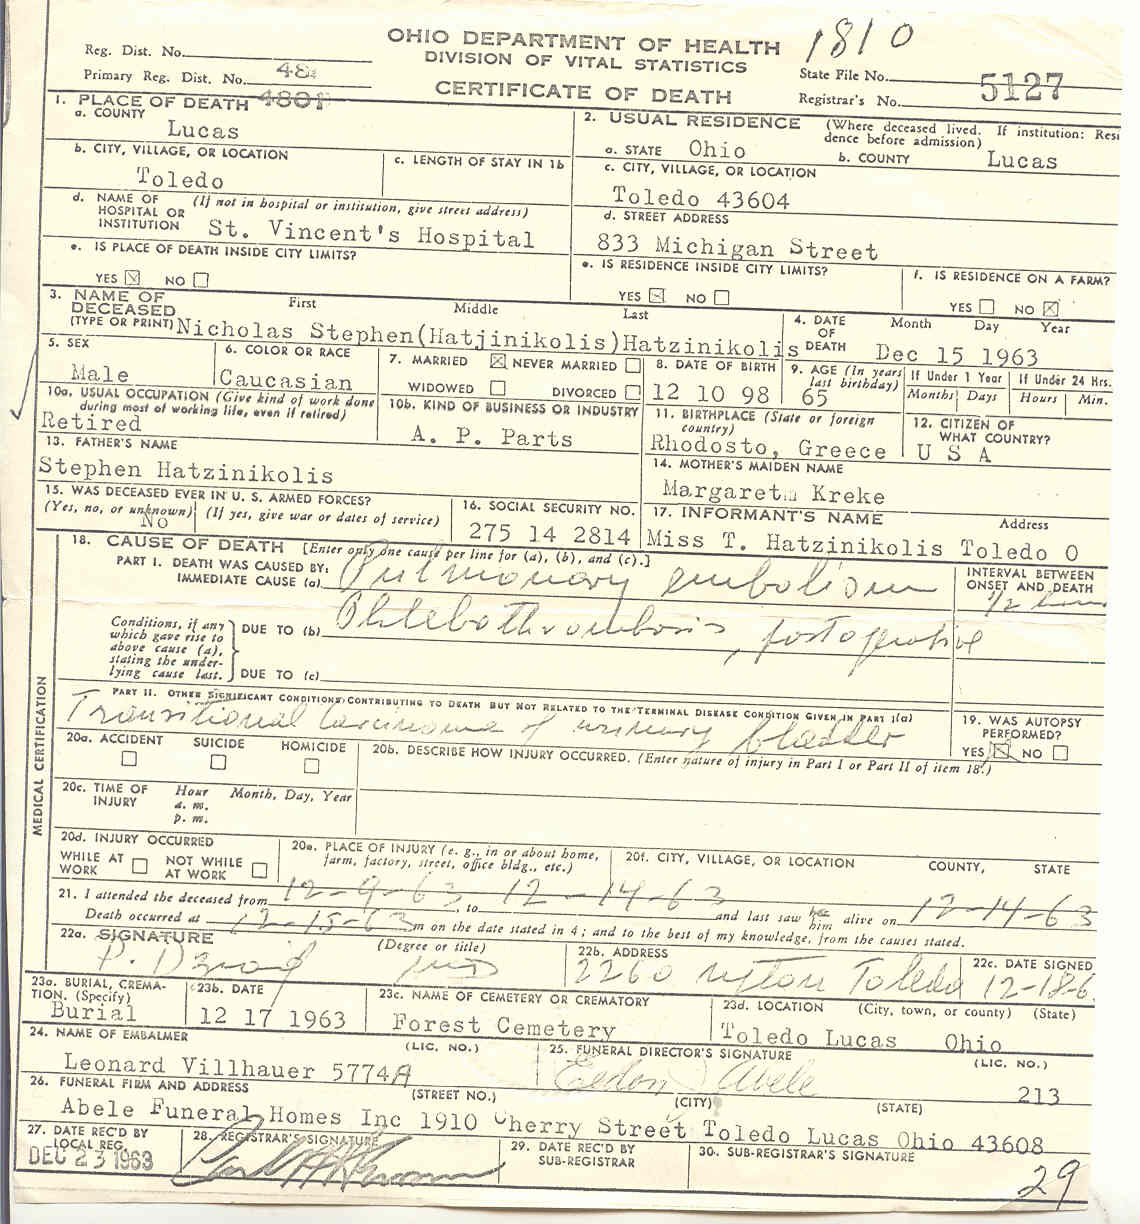 1810
OHIO DEPARTMENT OF HEALTH
DIVISION OF VITAL STATISTICS
CERTIFICATE OF DEATH
Reg. Dist. No.
Primary Reg. Dist. No. 48
4801
State File No.
Registrar's No. 5127
1. PLACE OF DEATH
a. COUNTY
Lucas
b. CITY, VILLAGE, OR LOCATION
Toledo
c. LENGTH OF STAY IN 1b
d. NAME OF HOSPITAL OR INSTITUTION (If not in hospital or institution, give street address)
St. Vincent's Hospital
e. IS PLACE OF DEATH INSIDE CITY LIMITS?
YES ☒ NO ☐
2. USUAL RESIDENCE (Where deceased lived. If institution: Resi
dence before admission)
a. STATE Ohio b. COUNTY Lucas
c. CITY, VILLAGE, OR LOCATION
Toledo 43604
d. STREET ADDRESS
833 Michigan Street
e. IS RESIDENCE INSIDE CITY LIMITS?
YES ☒ NO ☐
f. IS RESIDENCE ON A FARM?
YES ☐ NO ☒
3. NAME OF DECEASED (TYPE OR PRINT) First Middle Last
Nicholas Stephen(Hatjinikolis)Hatzinikolis
4. DATE OF DEATH Month Day Year
Dec 15 1963
5. SEX
Male
6. COLOR OR RACE
Caucasian
7. MARRIED ☒ NEVER MARRIED ☐
WIDOWED ☐ DIVORCED ☐
8. DATE OF BIRTH
12 10 98
9. AGE (In years last birthday)
65
If Under 1 Year If Under 24 Hrs.
Months Days Hours Min.
10a. USUAL OCCUPATION (Give kind of work done during most of working life, even if retired)
Retired
10b. KIND OF BUSINESS OR INDUSTRY
A. P. Parts
11. BIRTHPLACE (State or foreign country)
Rhodosto, Greece
12. CITIZEN OF WHAT COUNTRY?
U S A
13. FATHER'S NAME
Stephen Hatzinikolis
14. MOTHER'S MAIDEN NAME
Margareta Kreke
15. WAS DECEASED EVER IN U. S. ARMED FORCES?
(Yes, no, or unknown) (If yes, give war or dates of service)
No
16. SOCIAL SECURITY NO.
275 14 2814
17. INFORMANT'S NAME Address
Miss T. Hatzinikolis Toledo O
MEDICAL CERTIFICATION
18. CAUSE OF DEATH [Enter only one cause per line for (a), (b), and (c).]
PART I. DEATH WAS CAUSED BY:
IMMEDIATE CAUSE (a) Pulmonary embolism
INTERVAL BETWEEN ONSET AND DEATH
1/2
Conditions, if any which gave rise to above cause (a), stating the underlying cause last.
DUE TO (b) Phlebothrombosis, postoperative
DUE TO (c)
PART II. OTHER SIGNIFICANT CONDITIONS CONTRIBUTING TO DEATH BUT NOT RELATED TO THE TERMINAL DISEASE CONDITION GIVEN IN PART I(a)
Transitional carcinoma of urinary bladder
19. WAS AUTOPSY PERFORMED?
YES ☒ NO ☐
20a. ACCIDENT SUICIDE HOMICIDE
☐ ☐ ☐
20b. DESCRIBE HOW INJURY OCCURRED. (Enter nature of injury in Part I or Part II of item 18.)
20c. TIME OF INJURY Hour Month, Day, Year
a. m.
p. m.
20d. INJURY OCCURRED
WHILE AT WORK ☐ NOT WHILE AT WORK ☐
20e. PLACE OF INJURY (e. g., in or about home, farm, factory, street, office bldg., etc.)
20f. CITY, VILLAGE, OR LOCATION COUNTY, STATE
21. I attended the deceased from 12-9-63, to 12-14-63 and last saw her him alive on 12-14-63
Death occurred at 12-15-63 m on the date stated in 4; and to the best of my knowledge, from the causes stated.
22a. SIGNATURE (Degree or title)
22b. ADDRESS
2260 Toledo
22c. DATE SIGNED
12-18-6
23a. BURIAL, CREMATION. (Specify)
Burial
23b. DATE
12 17 1963
23c. NAME OF CEMETERY OR CREMATORY
Forest Cemetery
23d. LOCATION (City, town, or county) (State)
Toledo Lucas Ohio
24. NAME OF EMBALMER (LIC. NO.)
Leonard Villhauer 5774A
25. FUNERAL DIRECTOR'S SIGNATURE (LIC. NO.)
Abele 213
26. FUNERAL FIRM AND ADDRESS (STREET NO.) (CITY) (STATE)
Abele Funeral Homes Inc 1910 Cherry Street Toledo Lucas Ohio 43608
27. DATE REC'D BY LOCAL REG.
DEC 23 1963
28. REGISTRAR'S SIGNATURE
29. DATE REC'D BY SUB-REGISTRAR
30. SUB-REGISTRAR'S SIGNATURE
29